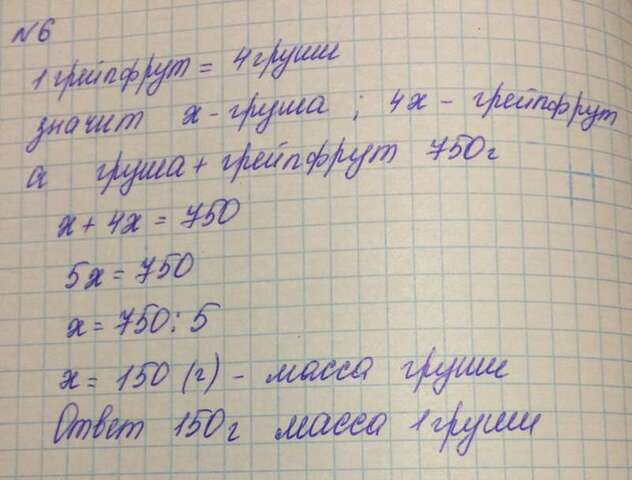 №6
1 грейпфрут = 4 груши
значит х - груша ; 4х - грейпфрут
а груша + грейпфрут 750г
х + 4х = 750
5х = 750
х = 750 : 5
х = 150 (г) - масса груши
Ответ 150г масса 1 груши